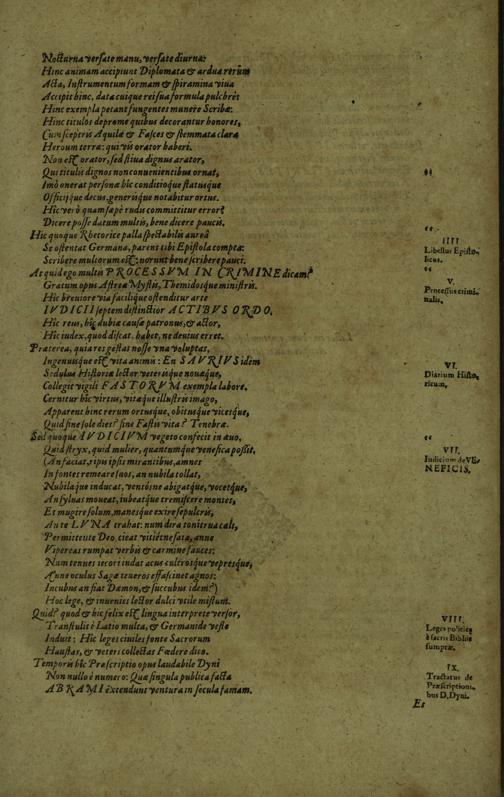 Nocturna versate manu, versate diurna:
Hinc animam accipiunt Diplomata & ardua rerum
Acta, Instrumentum formam & spiramina viva
Accipit hinc, data cuique rei sua formula pulchrè:
Hinc exempla petant fungentes munere Scribæ:
Hinc titulos deprome quibus decorantur honores,
Cum sceptris Aquilæ & Fasces & stemmata clara
Heroum terra: qui vis orator haberi.
Non est orator, sed stiua dignus arator,
Qui titulis dignos non conuenientibus ornat,
Imò onerat personæ hîc conditioque statusque
Officijque decus, generisque notabitur ortus.
Hîc verò quam sæpè rudis committitur error?
Dicere posse datum multis, bene dicere paucis.
Hic quoque Rhetorice palla spectabilis aurea
Se ostentat Germana, parens tibi Epistola compta:
Scribere multorum est: norunt bene scribere pauci.
At quid ego multis PROCESSVM IN CRIMINE dicam?
Gratum opus Astreæ Mystis, Themidosque ministris.
Hic breuiore via facilique ostenditur arte
IVDICII septem distinctior ACTIBVS ORDO.
Hic reus, hîc dubiæ causæ patronus, & actor,
Hic iudex, quod discat. habet, ne dentur erret.
Præterea, quia res gestas nosse vna voluptas,
Ingenuusque est vita animis: En SAVRIVS idem
Sedulus Historiæ lector veterisque nouæque,
Collegit vigili FASTORVM exempla labore.
Cernitur hîc virtus, vitæque illustris imago,
Apparent hinc rerum ortusque, obitusque vicesque,
Quid sine sole dies? sine Fastis vita? Tenebræ.
Sed quoque IVDICIVM vegeto confecit in æuo,
Quid stryx, quid mulier, quantumque venefica possit,
(An faciat, ripis ipsis mirantibus, amnes
In fontes remeare suos, an nubila tollat,
Nubilaque inducat, ventosne abigatque, vocetque,
An syluas moueat, iubeatque tremiscere montes,
Et mugire solum, manesque exire sepulcris,
An te LVNA trahat: num dira tonitrua cæli,
Permittente Deo, cieat vitietne sata, anne
Vipereas rumpat verbis & carmine fauces:
Num tenues iecori indat acus cultrosque vepresque,
Anne oculus Sagæ teneros effascinet agnos:
Incubus an fiat Dæmon, & succubus idem?)
Hoc lege, & inuenies lector dulci vtile mistum.
Quid? quod & hîc felix est lingua interprete versor,
Transtulit è Latio multa, & Germanide veste
Induit: Hic leges ciuiles fonte Sacrorum
Haustas, & veteri collectas Fœdere dico.
Temporis hîc Præscriptio opus laudabile Dyni
Non nullo è numero: Quæ singula publica facta
ABRAMI extendunt ventura in secula famam.
IIII
Libellus Episto-
licus.
V.
Processus crimi-
nalis.
VI.
Diarium Histo-
ricum.
VII.
Iudicium de VE-
NEFICIS.
VIII.
Leges politicæ
è sacris Bibliis
sumptæ.
IX.
Tractatus de
Præscriptioni-
bus D. Dyni.
Et